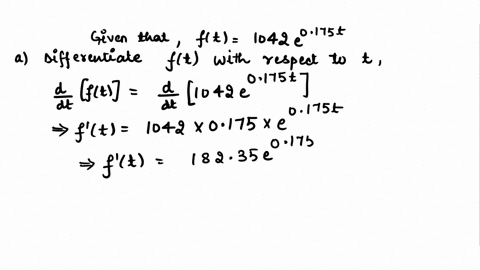 Given that, f(t) = 1042 e^0.175t
a) Differentiate f(t) with respect to t,
d/dt [f(t)] = d/dt [1042 e^0.175t]
⇒ f'(t) = 1042 × 0.175 × e^0.175t
⇒ f'(t) = 182.35 e^0.175